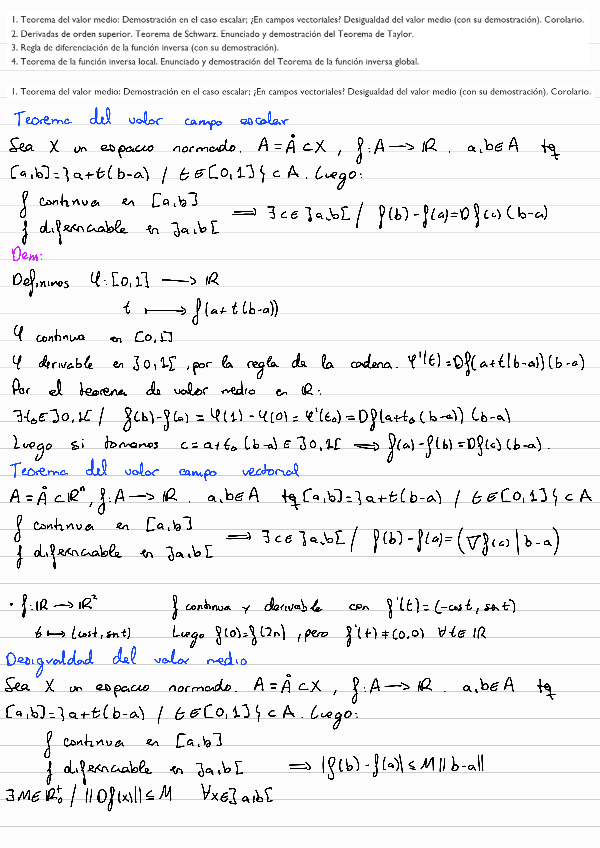 1. Teorema del valor medio: Demostración en el caso escalar; ¿En campos vectoriales? Desigualdad del valor medio (con su demostración). Corolario.
2. Derivadas de orden superior. Teorema de Schwarz. Enunciado y demostración del Teorema de Taylor.
3. Regla de diferenciación de la función inversa (con su demostración).
4. Teorema de la función inversa local. Enunciado y demostración del Teorema de la función inversa global.
1. Teorema del valor medio: Demostración en el caso escalar; ¿En campos vectoriales? Desigualdad del valor medio (con su demostración). Corolario.
Teorema del valor campo escalar
Sea X un espacio normado. A = Å ⊂ X, f: A → ℝ. a,b∈A tq
[a,b] = }a+t(b-a) / t∈[0,1]{ ⊂ A. Luego:
f continua en [a,b]
f diferenciable en ]a,b[ ⟹ ∃c∈]a,b[ / f(b)-f(a)=Df(c)(b-a)
Dem:
Definimos φ: [0,1] → ℝ
t ⟼ f(a+t(b-a))
φ continua en [0,1]
φ derivable en ]0,1[, por la regla de la cadena. φ'(t)=Df(a+t(b-a))(b-a)
Por el teorema de valor medio en ℝ:
∃t₀∈]0,1[ / f(b)-f(a) = φ(1)-φ(0) = φ'(t₀)=Df(a+t₀(b-a))(b-a)
Luego si tomamos c = a+t₀(b-a) ∈ ]0,1[ ⟹ f(a)-f(b)=Df(c)(b-a).
Teorema del valor campo vectorial
A = Å ⊂ ℝⁿ, f: A → ℝ. a,b∈A tq [a,b] = }a+t(b-a) / t∈[0,1]{ ⊂ A
f continua en [a,b]
f diferenciable en ]a,b[ ⟹ ∃c∈]a,b[ / f(b)-f(a)=(∇f(c) | b-a)
· f: ℝ → ℝ² f continua y derivable con f'(t)=(-cost, sent)
t ⟼ (cost, snt) Luego f(0)=f(2π), pero f'(t)≠(0,0) ∀t∈ℝ
Desigualdad del valor medio
Sea X un espacio normado. A = Å ⊂ X, f: A → ℝ. a,b∈A tq
[a,b] = }a+t(b-a) / t∈[0,1]{ ⊂ A. Luego:
f continua en [a,b]
f diferenciable en ]a,b[ ⟹ |f(b)-f(a)| ≤ M ||b-a||
∃M∈ℝ₀⁺ / ||Df(x)|| ≤ M ∀x∈]a,b[